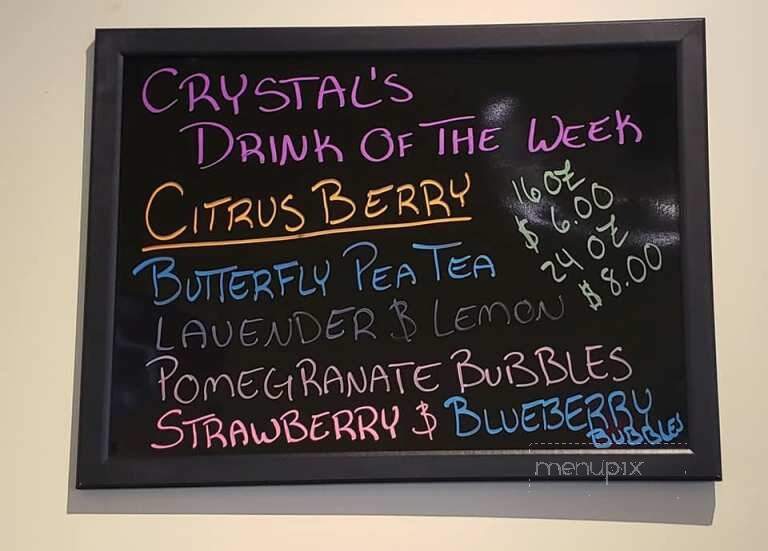 CRYSTAL'S
DRINK OF THE WEEK
CITRUS BERRY
16 OZ
$ 6.00
24 OZ
$ 8.00
BUTTERFLY PEA TEA
LAVENDER & LEMON
POMEGRANATE BUBBLES
STRAWBERRY & BLUEBERRY
BUBBLES
menupix